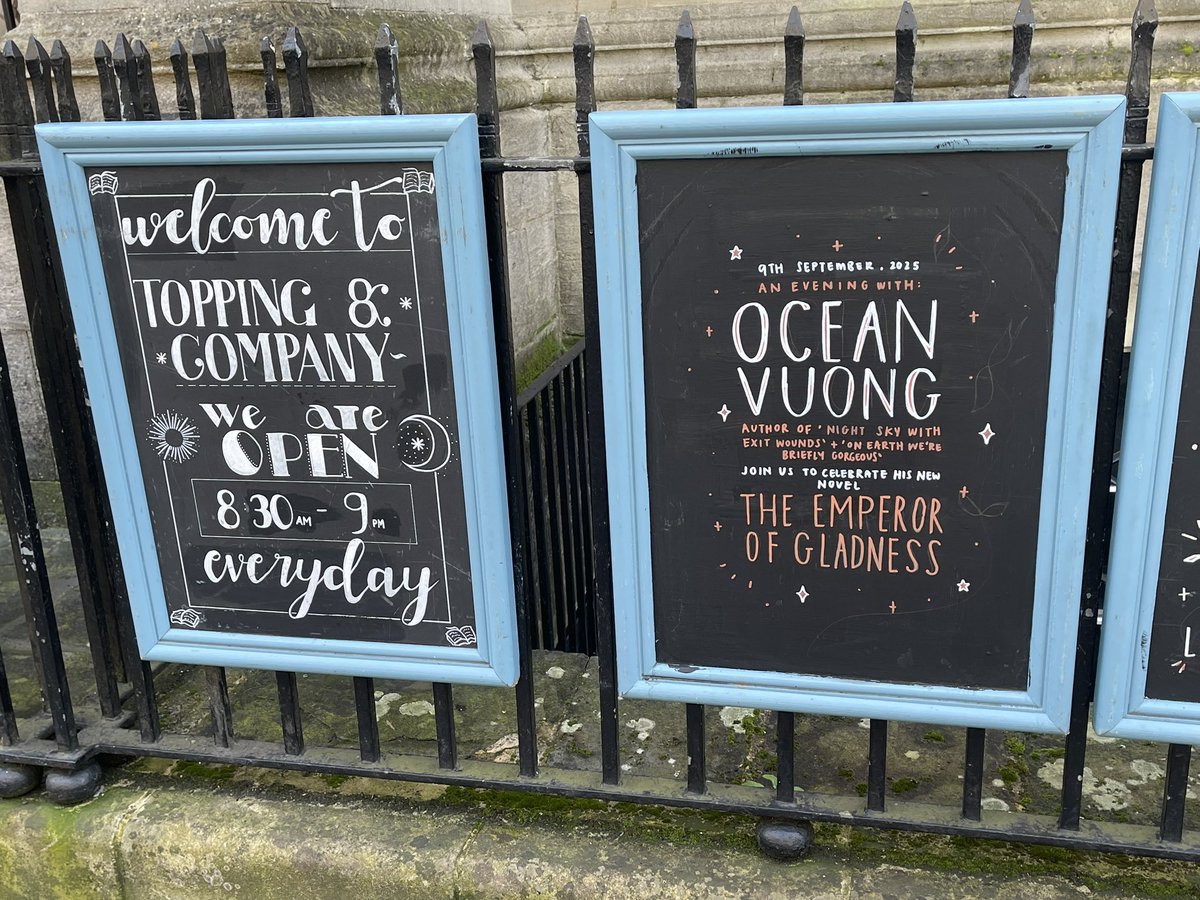 welcome to
TOPPING &
COMPANY
we are
OPEN
8:30AM - 9PM
everyday
9TH SEPTEMBER, 2025
AN EVENING WITH:
OCEAN
VUONG
AUTHOR OF 'NIGHT SKY WITH
EXIT WOUNDS' + 'ON EARTH WE'RE
BRIEFLY GORGEOUS'
JOIN US TO CELEBRATE HIS NEW
NOVEL
THE EMPEROR
OF GLADNESS
L